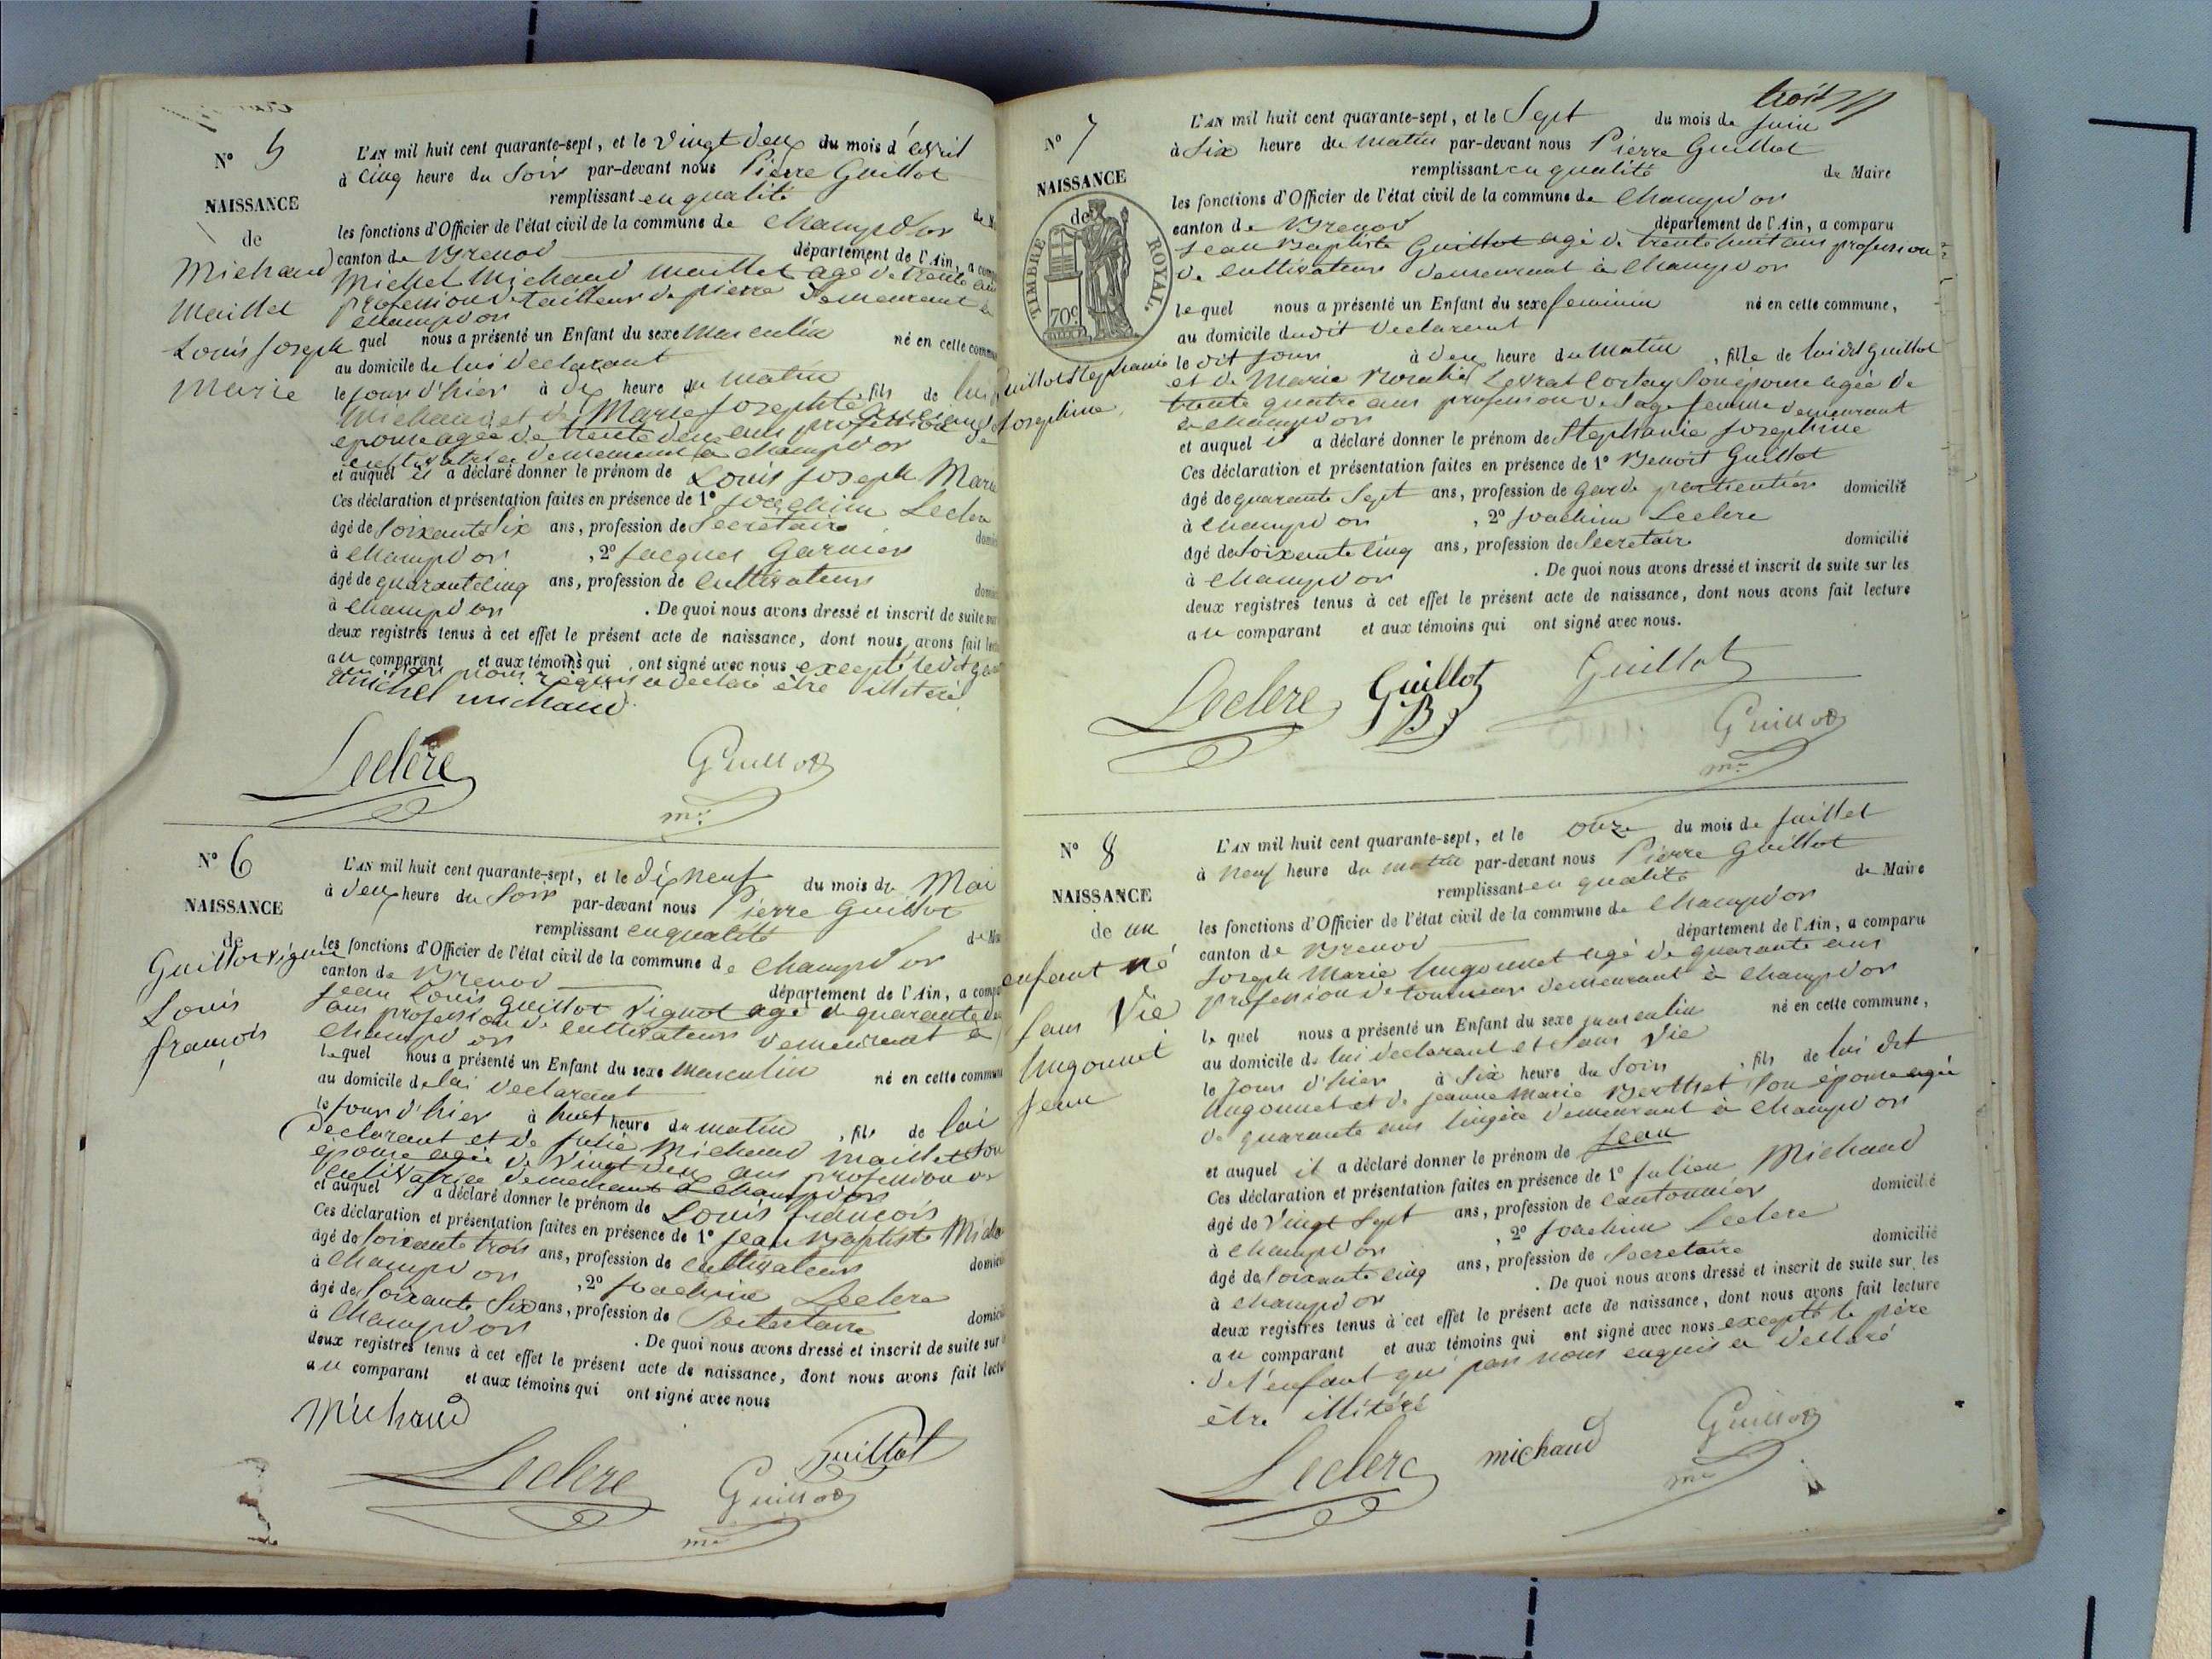 N° 5
NAISSANCE
de
Michaud
Maillet
Louis Joseph
Marie
L'AN mil huit cent quarante-sept, et le Vingt deux du mois d'avril
à Cinq heure du Soir par-devant nous Pierre Guillot
remplissant en qualité de
les fonctions d'Officier de l'état civil de la commune de Champd'or
canton de Brenod département de l'Ain, a
Michel Michaud Maillet agé de trente
profession de tailleur de pierre demeurant à
Champd'or
quel nous a présenté un Enfant du sexe Masculin né en cette
au domicile de lui declarant
le jour d'hier à dix heure du matin fils de lui
Michaud et de Marie Josephte
epouse agée de trente deux ans profession de
cultivatrice demeurant à Champd'or
et auquel il a déclaré donner le prénom de Louis Joseph Marie
Ces déclaration et présentation faites en présence de 1° Joachim Leclerc
âgé de Soixante Six ans, profession de Secrétaire
à Champd'or , 2° Jacques Garnier
âgé de quarante cinq ans, profession de Cultivateur
à Champd'or . De quoi nous avons dressé et inscrit de suite sur
deux registres tenus à cet effet le présent acte de naissance, dont nous avons fait
au comparant et aux témoins qui ont signé avec nous excepté ledit
qui par nous requis a declaré être illiteré
michel michaud
Leclerc Guillot
mre
N° 6
NAISSANCE
de
Guillot Vignot
Louis
françois
L'AN mil huit cent quarante-sept, et le dix neuf du mois de Mai
à deux heure du Soir par-devant nous Pierre Guillot
remplissant en qualité de
les fonctions d'Officier de l'état civil de la commune de Champd'or
canton de Brenod département de l'Ain, a
Jean Louis Guillot Vignot agé de quarante
ans profession de cultivateur demeurant à
Champd'or
lequel nous a présenté un Enfant du sexe Masculin né en cette
au domicile de lui declarant
le jour d'hier à huit heure du matin , fils de lui
declarant et de Julie Michaud Maillet son
épouse agée de vingt deux ans profession de
cultivatrice demeurant à Champd'or
et auquel il a déclaré donner le prénom de Louis françois
Ces déclaration et présentation faites en présence de 1° Jean Baptiste
âgé de Soixante trois ans, profession de cultivateur
à Champd'or , 2° Joachim Leclerc
âgé de Soixante Six ans, profession de Secretaire
à Champd'or . De quoi nous avons dressé et inscrit de suite sur
deux registres tenus à cet effet le présent acte de naissance, dont nous avons fait
au comparant et aux témoins qui ont signé avec nous
Michaud
Leclerc Guillot Guillot
mre
trois
N° 7
NAISSANCE
de
TIMBRE ROYAL.
70c
Guillot Stephanie
Josephine
L'AN mil huit cent quarante-sept, et le Sept du mois de Juin
à Six heure du Matin par-devant nous Pierre Guillot
remplissant en qualité de Maire
les fonctions d'Officier de l'état civil de la commune de Champd'or
canton de Brenod département de l'Ain, a comparu
Jean Baptiste Guillot agé de trente huit ans profession
de cultivateur demeurant à Champd'or
lequel nous a présenté un Enfant du sexe feminin né en cette commune,
au domicile dudit declarant
le dit jour à deux heure du Matin , fille de lui dit Guillot
et de Marie Rosalie Levrat Cortay Son épouse agée de
trente quatre ans profession de Sage femme demeurant
à Champd'or
et auquel il a déclaré donner le prénom de Stephanie Josephine
Ces déclaration et présentation faites en présence de 1° Benoit Guillot
âgé de quarante Sept ans, profession de garde particulier domicilié
à Champd'or , 2° Joachim Leclerc
âgé de Soixante Cinq ans, profession de Secretaire domicilié
à Champd'or . De quoi nous avons dressé et inscrit de suite sur les
deux registres tenus à cet effet le présent acte de naissance, dont nous avons fait lecture
au comparant et aux témoins qui ont signé avec nous.
Leclerc Guillot Guillot
J B Guillot
mre
N° 8
NAISSANCE
de un
enfant né
Sans Vie
hugonnet
Jean
L'AN mil huit cent quarante-sept, et le onze du mois de Juillet
à Neuf heure du matin par-devant nous Pierre Guillot
remplissant en qualité de Maire
les fonctions d'Officier de l'état civil de la commune de Champd'or
canton de Brenod département de l'Ain, a comparu
Joseph Marie hugonnet agé de quarante ans
profession de tourneur demeurant à Champd'or
le quel nous a présenté un Enfant du sexe masculin né en cette commune,
au domicile de lui declarant et Sans Vie
le Jour d'hier à Six heure du Soir , fils de lui dit
hugonnet et de Jeanne Marie Berthet Son épouse agée
de quarante ans lingère demeurant à Champd'or
et auquel il a déclaré donner le prénom de Jean
Ces déclaration et présentation faites en présence de 1° Julien Michaud
âgé de Vingt Sept ans, profession de Cantonnier domicilié
à Champd'or , 2° Joachim Leclerc
âgé de Soixante Cinq ans, profession de Secretaire domicilié
à Champd'or . De quoi nous avons dressé et inscrit de suite sur les
deux registres tenus à cet effet le présent acte de naissance, dont nous avons fait lecture
au comparant et aux témoins qui ont signé avec nous excepté le père
de l'enfant qui par nous enquis a declaré
être illitéré
Leclerc michaud Guillot
mre